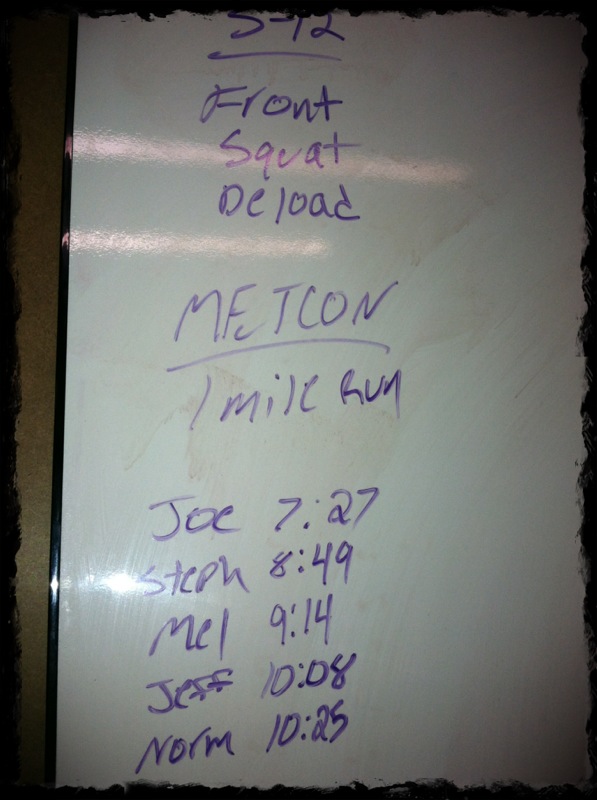 5-12
Front
Squat
Deload
METCON
1 mile Run
Joe 7:27
Steph 8:49
Mel 9:14
Jeff 10:08
Norm 10:25